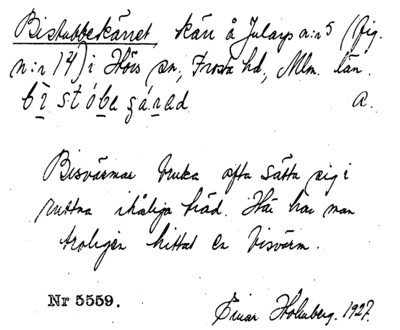 Bistubbekärret, kärr å Jularps n:r 5 (fig.
n:r 14) i Hörs sn, Frosta hd, Mlm. län.
A.
Bisvärmar bruka ofta sätta sig i
ruttna ihåliga träd. Här har man
troligen hittat en bisvärm.
Nr 5559.
Einar Holmberg. 1927.